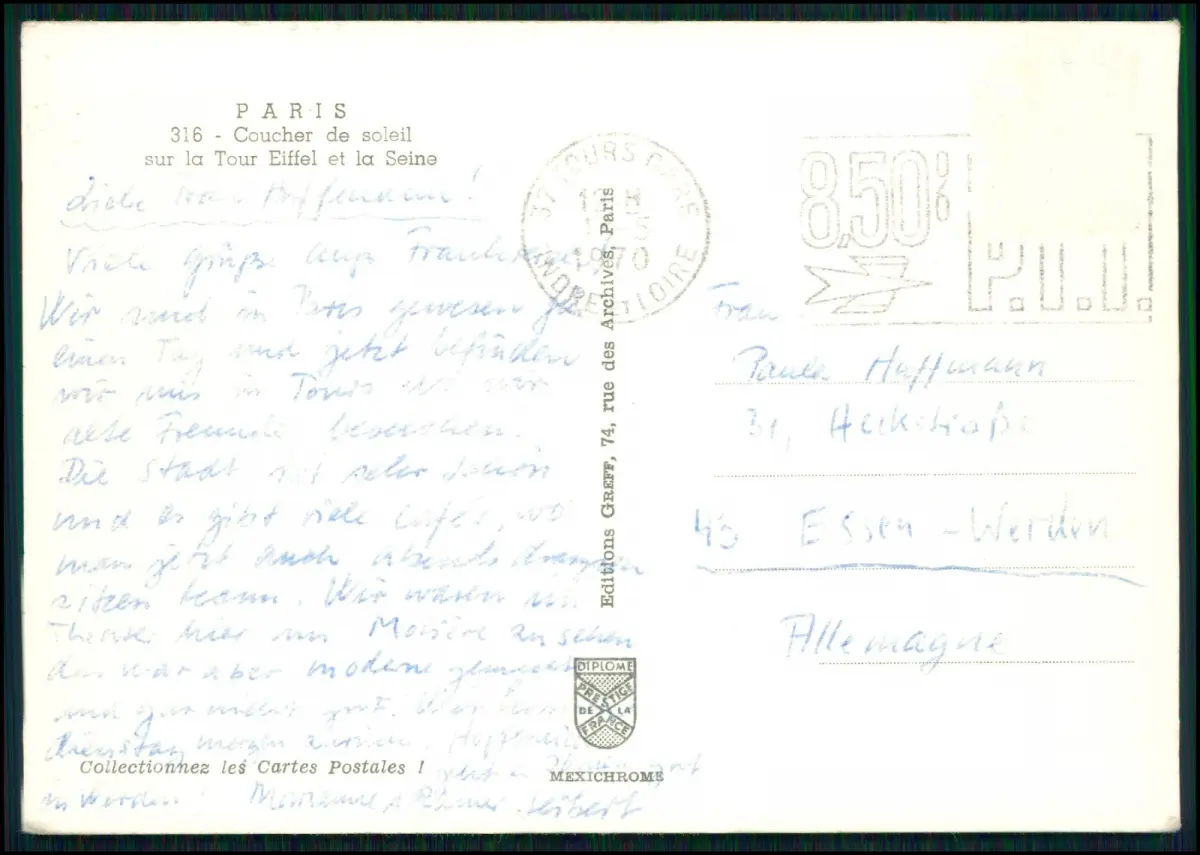 PARIS
316 - Coucher de soleil
sur la Tour Eiffel et la Seine
Liebe Frau Huffmann!
Viele Grüße aus Frankreich
Wir sind in Paris gewesen für
einen Tag und jetzt befinden
wir uns in Tours wo wir
alte Freunde besuchen.
Die Stadt ist sehr schön
und es gibt viele Cafés, wo
man jetzt auch abends draussen
sitzen kann. Wir waren im
Theater hier um Molière zu sehen
das war aber modern gemacht
und gar nicht gut. Wir
dienstag morgen zurück. Hoffentlich
geht gut
in Werden! Marianne
Collectionnez les Cartes Postales !
Editions GREFF, 74, rue des Archives, Paris
DIPLOME
PRESTIGE
DE LA
FRANCE
MEXICHROME
37 TOURS GARE
1970
INDRE ET LOIRE
8,50
P.T.T.
Frau
Paula Huffmann
31, Heckstraße
43 Essen-Werden
Allemagne